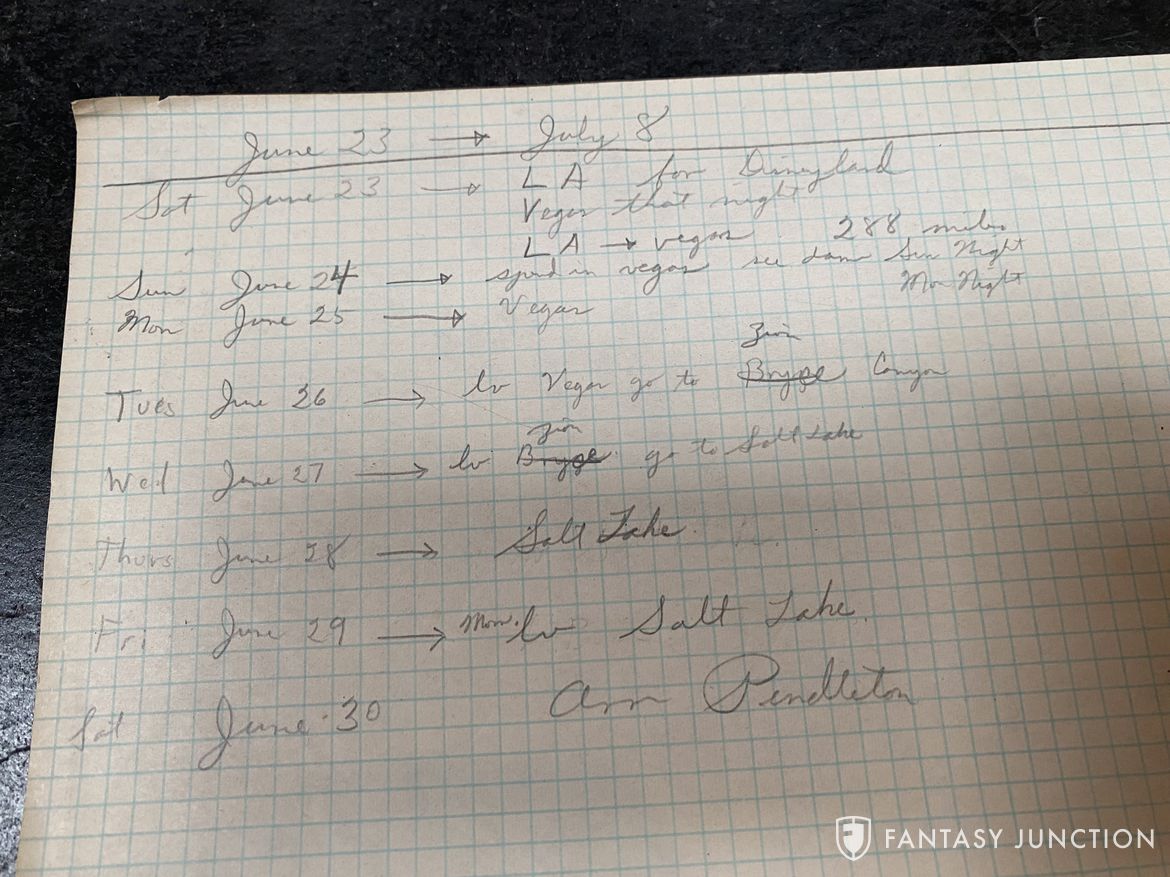 June 23 → July 8
Sat June 23 → LA for Disneyland
Vegas that night
LA → vegas 288 miles
Sun June 24 → spend in vegas see dam Sun Night
Mon June 25 → Vegas Mon Night
Zion
Tues June 26 → lv Vegas go to Bryce Canyon
Zion
Wed June 27 → lv Bryce go to Salt Lake
Thurs June 28 → Salt Lake
Fri June 29 → Morn. lv Salt Lake.
Sat June 30 Ann Pendleton
FANTASY JUNCTION